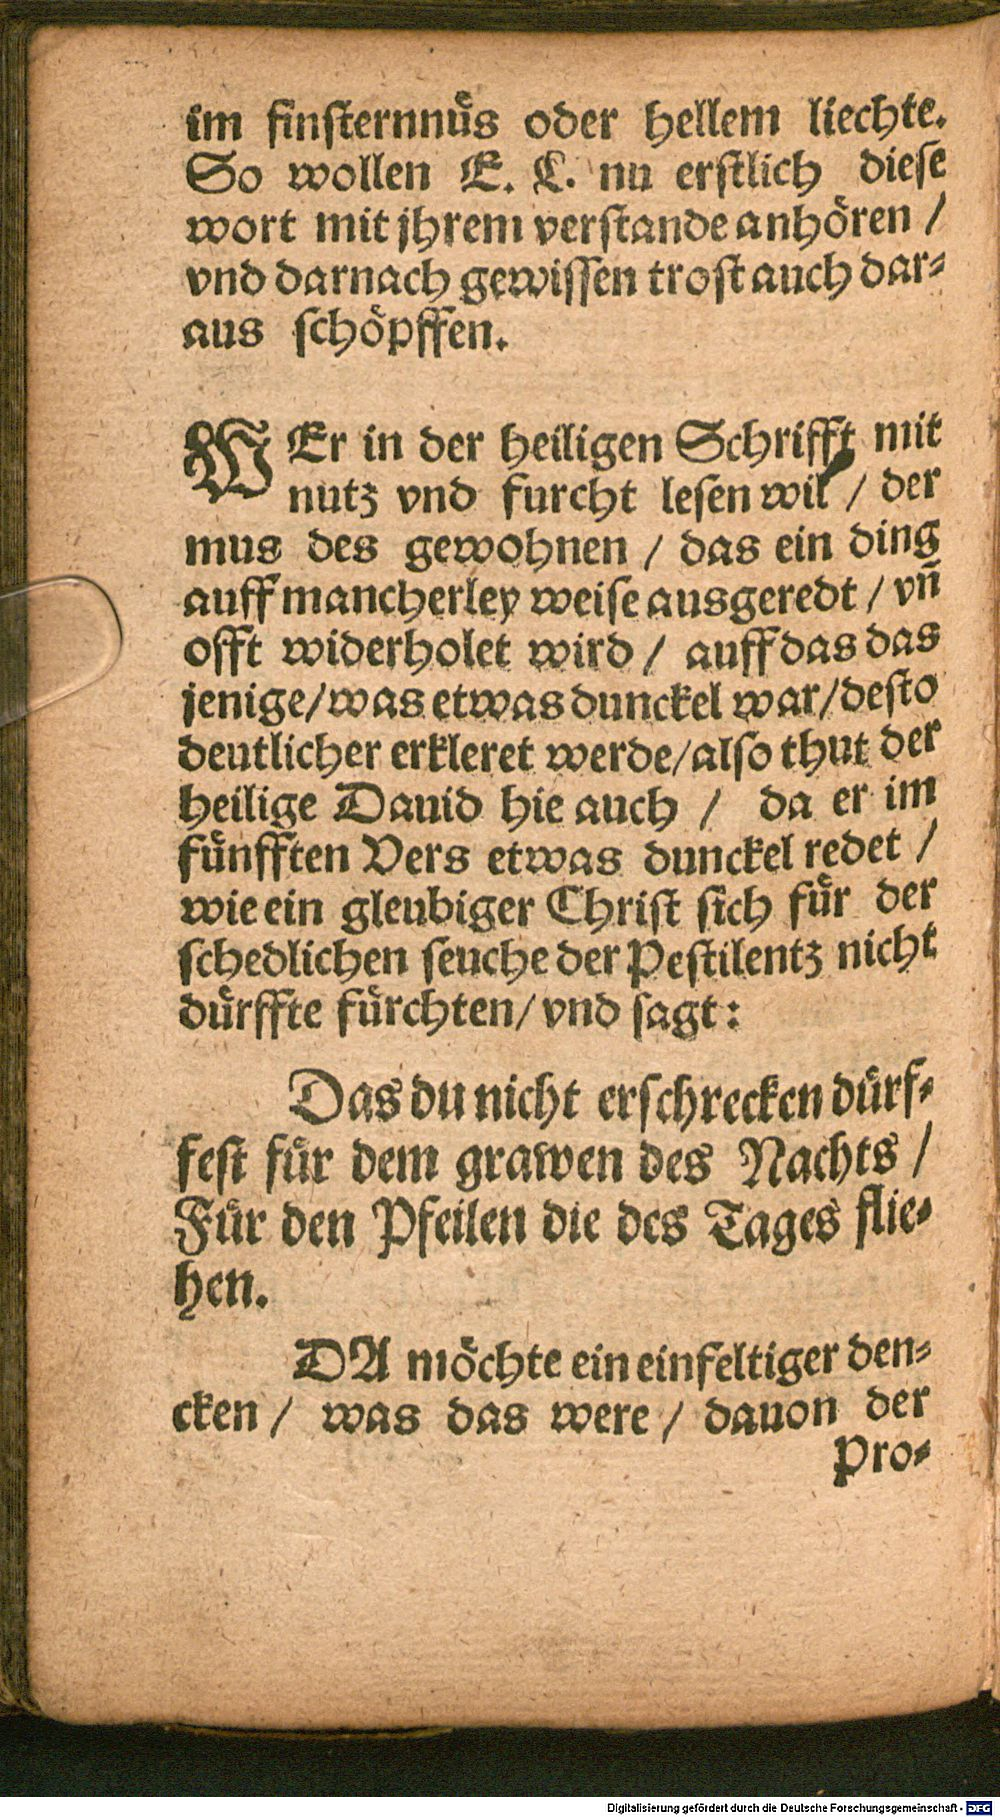 im finsternnuͤs oder hellem liechte.
So wollen E. L. nu erstlich diese
wort mit jhrem verstande anhoͤren /
vnd darnach gewissen trost auch dar-
aus schoͤpffen.
WEr in der heiligen Schrifft mit
nutz vnd furcht lesen wil / der
mus des gewohnen / das ein ding
auff mancherley weise ausgeredt / vñ
offt widerholet wird / auff das das
jenige / was etwas dunckel war / desto
deutlicher erkleret werde / also thut der
heilige Dauid hie auch / da er im
fuͤnfften Vers etwas dunckel redet /
wie ein gleubiger Christ sich fuͤr der
schedlichen seuche der Pestilentz nicht
duͤrffte fuͤrchten / vnd sagt:
Das du nicht erschrecken duͤrf-
fest fuͤr dem grawen des Nachts /
Fuͤr den Pfeilen die des Tages flie-
hen.
DA moͤchte ein einfeltiger den-
cken / was das were / dauon der
Pro-
Digitalisierung gefördert durch die Deutsche Forschungsgemeinschaft - DFG